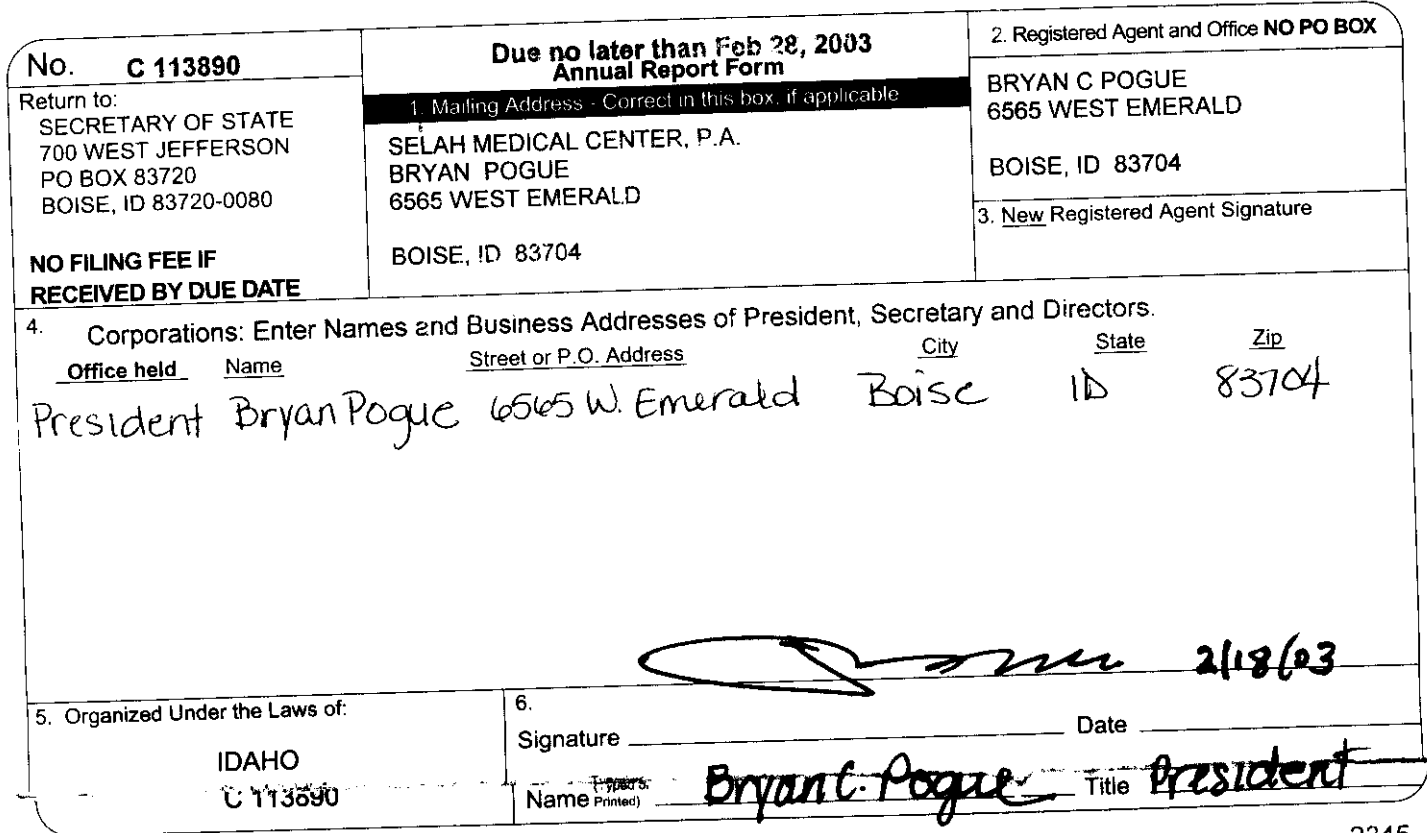 No. C 113890
Return to:
SECRETARY OF STATE
700 WEST JEFFERSON
PO BOX 83720
BOISE, ID 83720-0080
NO FILING FEE IF
RECEIVED BY DUE DATE
Due no later than Feb 28, 2003
Annual Report Form
1. Mailing Address - Correct in this box, if applicable
SELAH MEDICAL CENTER, P.A.
BRYAN POGUE
6565 WEST EMERALD
BOISE, ID 83704
2. Registered Agent and Office NO PO BOX
BRYAN C POGUE
6565 WEST EMERALD
BOISE, ID 83704
3. New Registered Agent Signature
4. Corporations: Enter Names and Business Addresses of President, Secretary and Directors.
Office held Name Street or P.O. Address City State Zip
President Bryan Pogue 6565 W. Emerald Boise ID 83704
2/18/03
5. Organized Under the Laws of:
IDAHO
C 113890
6.
Signature Date
Name Printed) Bryan C. Pogue Title President